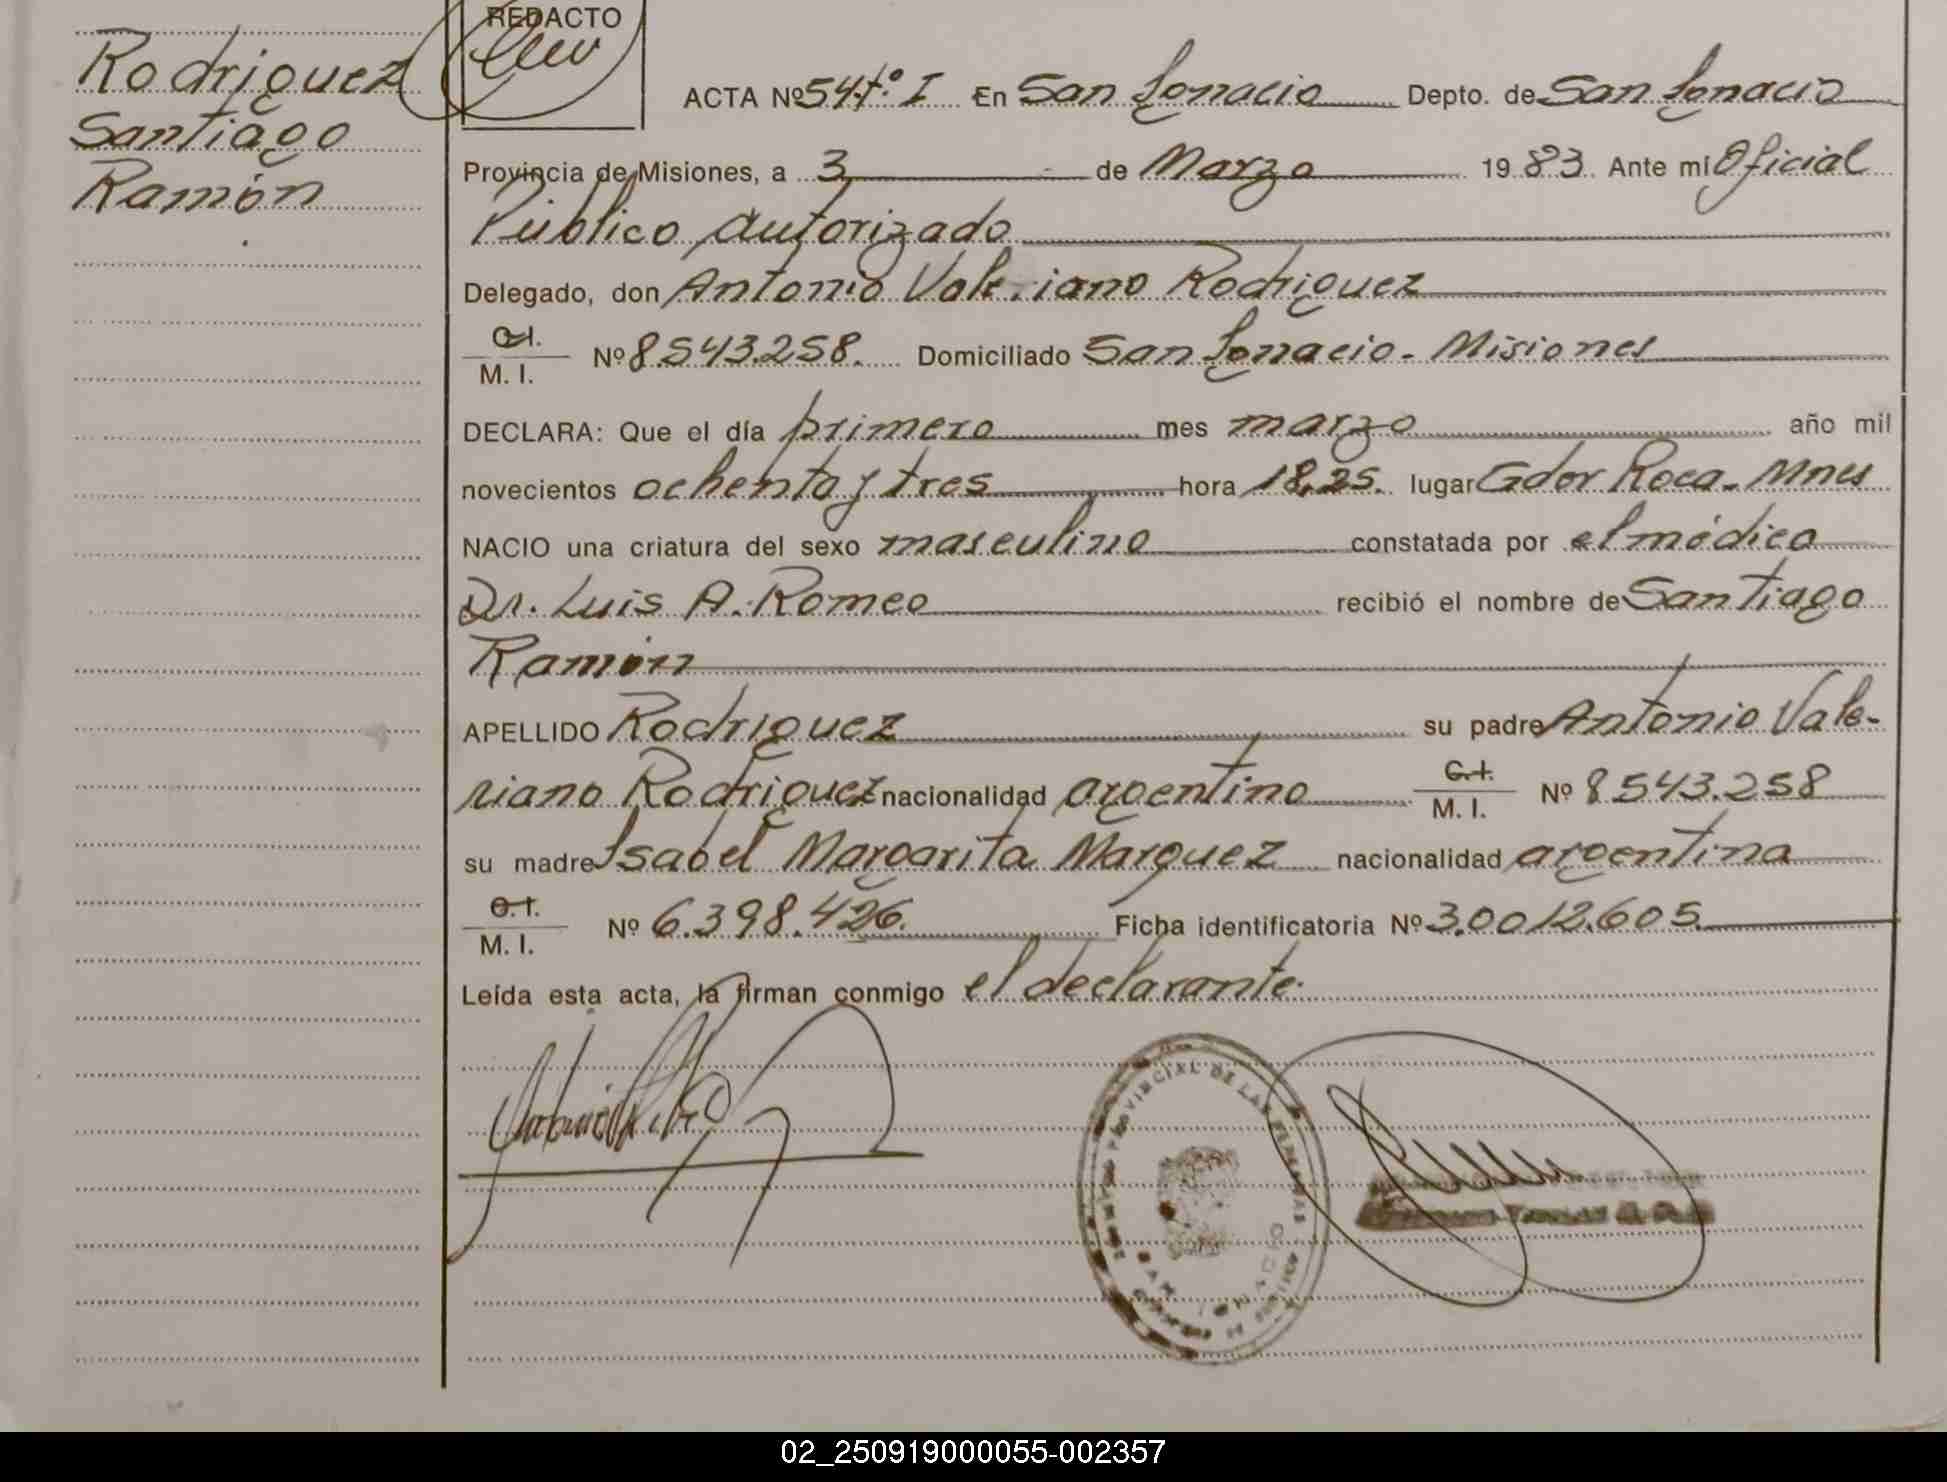 Rodriguez
Santiago
Ramón
REDACTO
ACTA Nº 54 tº I En San Ignacio Depto. de San Ignacio
Provincia de Misiones, a 3 de Marzo 1983 Ante mí Oficial
Público Autorizado
Delegado, don Antonio Valeriano Rodriguez
C.I. M. I. Nº 8.543.258. Domiciliado San Ignacio - Misiones
DECLARA: Que el día primero mes marzo año mil
novecientos ochenta y tres hora 18,25. lugar Gdor Roca - Mnes
NACIO una criatura del sexo masculino constatada por el médico
Dr. Luis A. Romeo recibió el nombre de Santiago
Ramón
APELLIDO Rodriguez su padre Antonio Vale-
riano Rodriguez nacionalidad argentino C.I. M. I. Nº 8.543.258
su madre Isabel Margarita Marquez nacionalidad argentina
C.I. M. I. Nº 6.398.426. Ficha identificatoria Nº 3.0012.605.
Leída esta acta, la firman conmigo el declarante.
PROVINCIAL DE LAS PERSONAS
SAN IGNACIO
02_250919000055-002357